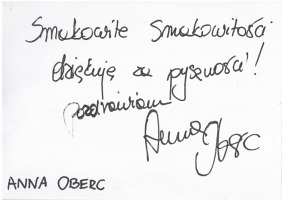 Smakowite Smakowitości
dziękuję za pyszności!
pozdrawiam
Anna Oberc
ANNA OBERC